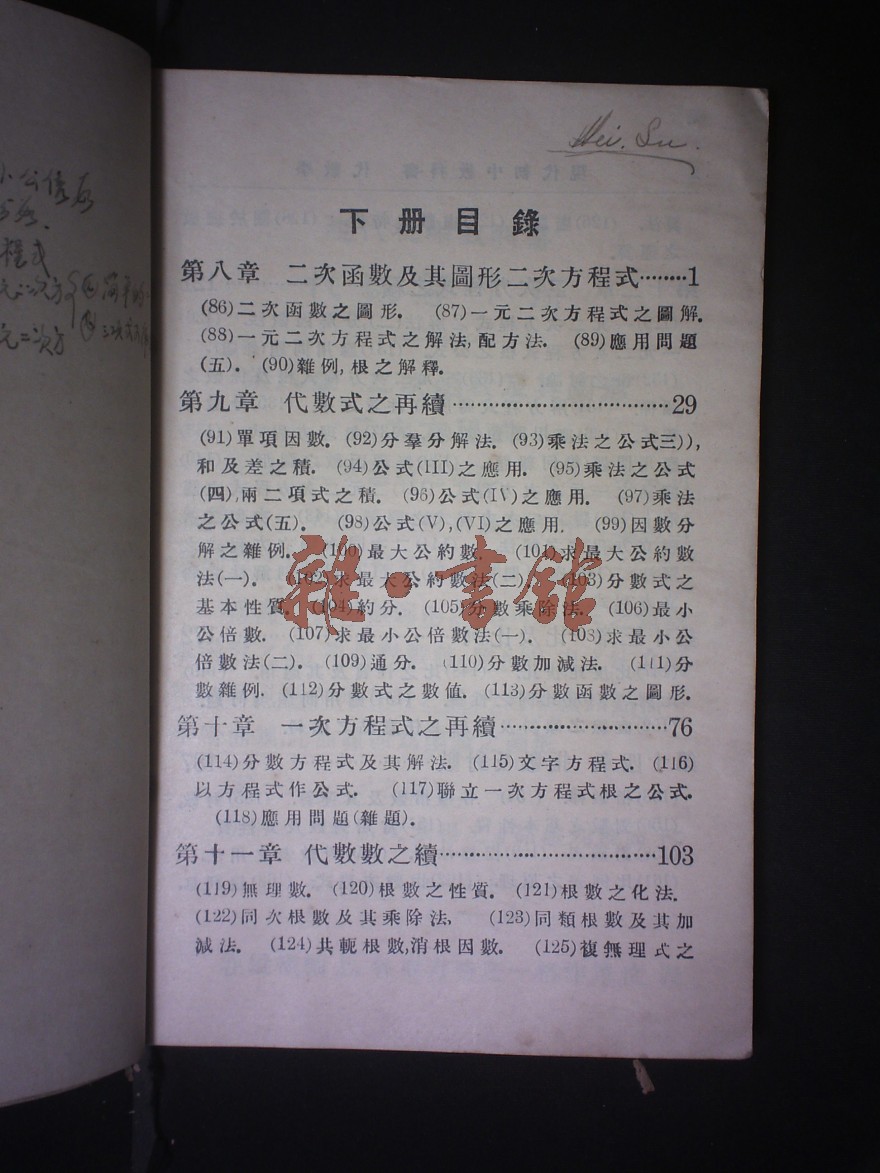 下册目錄
第八章 二次函數及其圖形二次方程式………1
(86)二次函數之圖形. (87)一元二次方程式之圖解.
(88)一元二次方程式之解法,配方法. (89)應用問題
(五). (90)雜例,根之解釋.
第九章 代數式之再續………………………………29
(91)單項因數. (92)分羣分解法. (93)乘法之公式三)),
和及差之積. (94)公式(III)之應用. (95)乘法之公式
(四),兩二項式之積. (96)公式(IV)之應用. (97)乘法
之公式(五). (98)公式(V),(VI)之應用. (99)因數分
解之雜例. (100)最大公約數. (101)求最大公約數
法(一). (102)求最大公約數法(二). (103)分數式之
基本性質. (104)約分. (105)分數乘除法. (106)最小
公倍數. (107)求最小公倍數法(一). (108)求最小公
倍數法(二). (109)通分. (110)分數加減法. (111)分
數雜例. (112)分數式之數值. (113)分數函數之圖形.
第十章 一次方程式之再續………………………76
(114)分數方程式及其解法. (115)文字方程式. (116)
以方程式作公式. (117)聯立一次方程式根之公式.
(118)應用問題(雜題).
第十一章 代數數之續………………………………103
(119)無理數. (120)根數之性質. (121)根數之化法.
(122)同次根數及其乘除法. (123)同類根數及其加
減法. (124)共軛根數,消根因數. (125)複無理式之
雜·書館